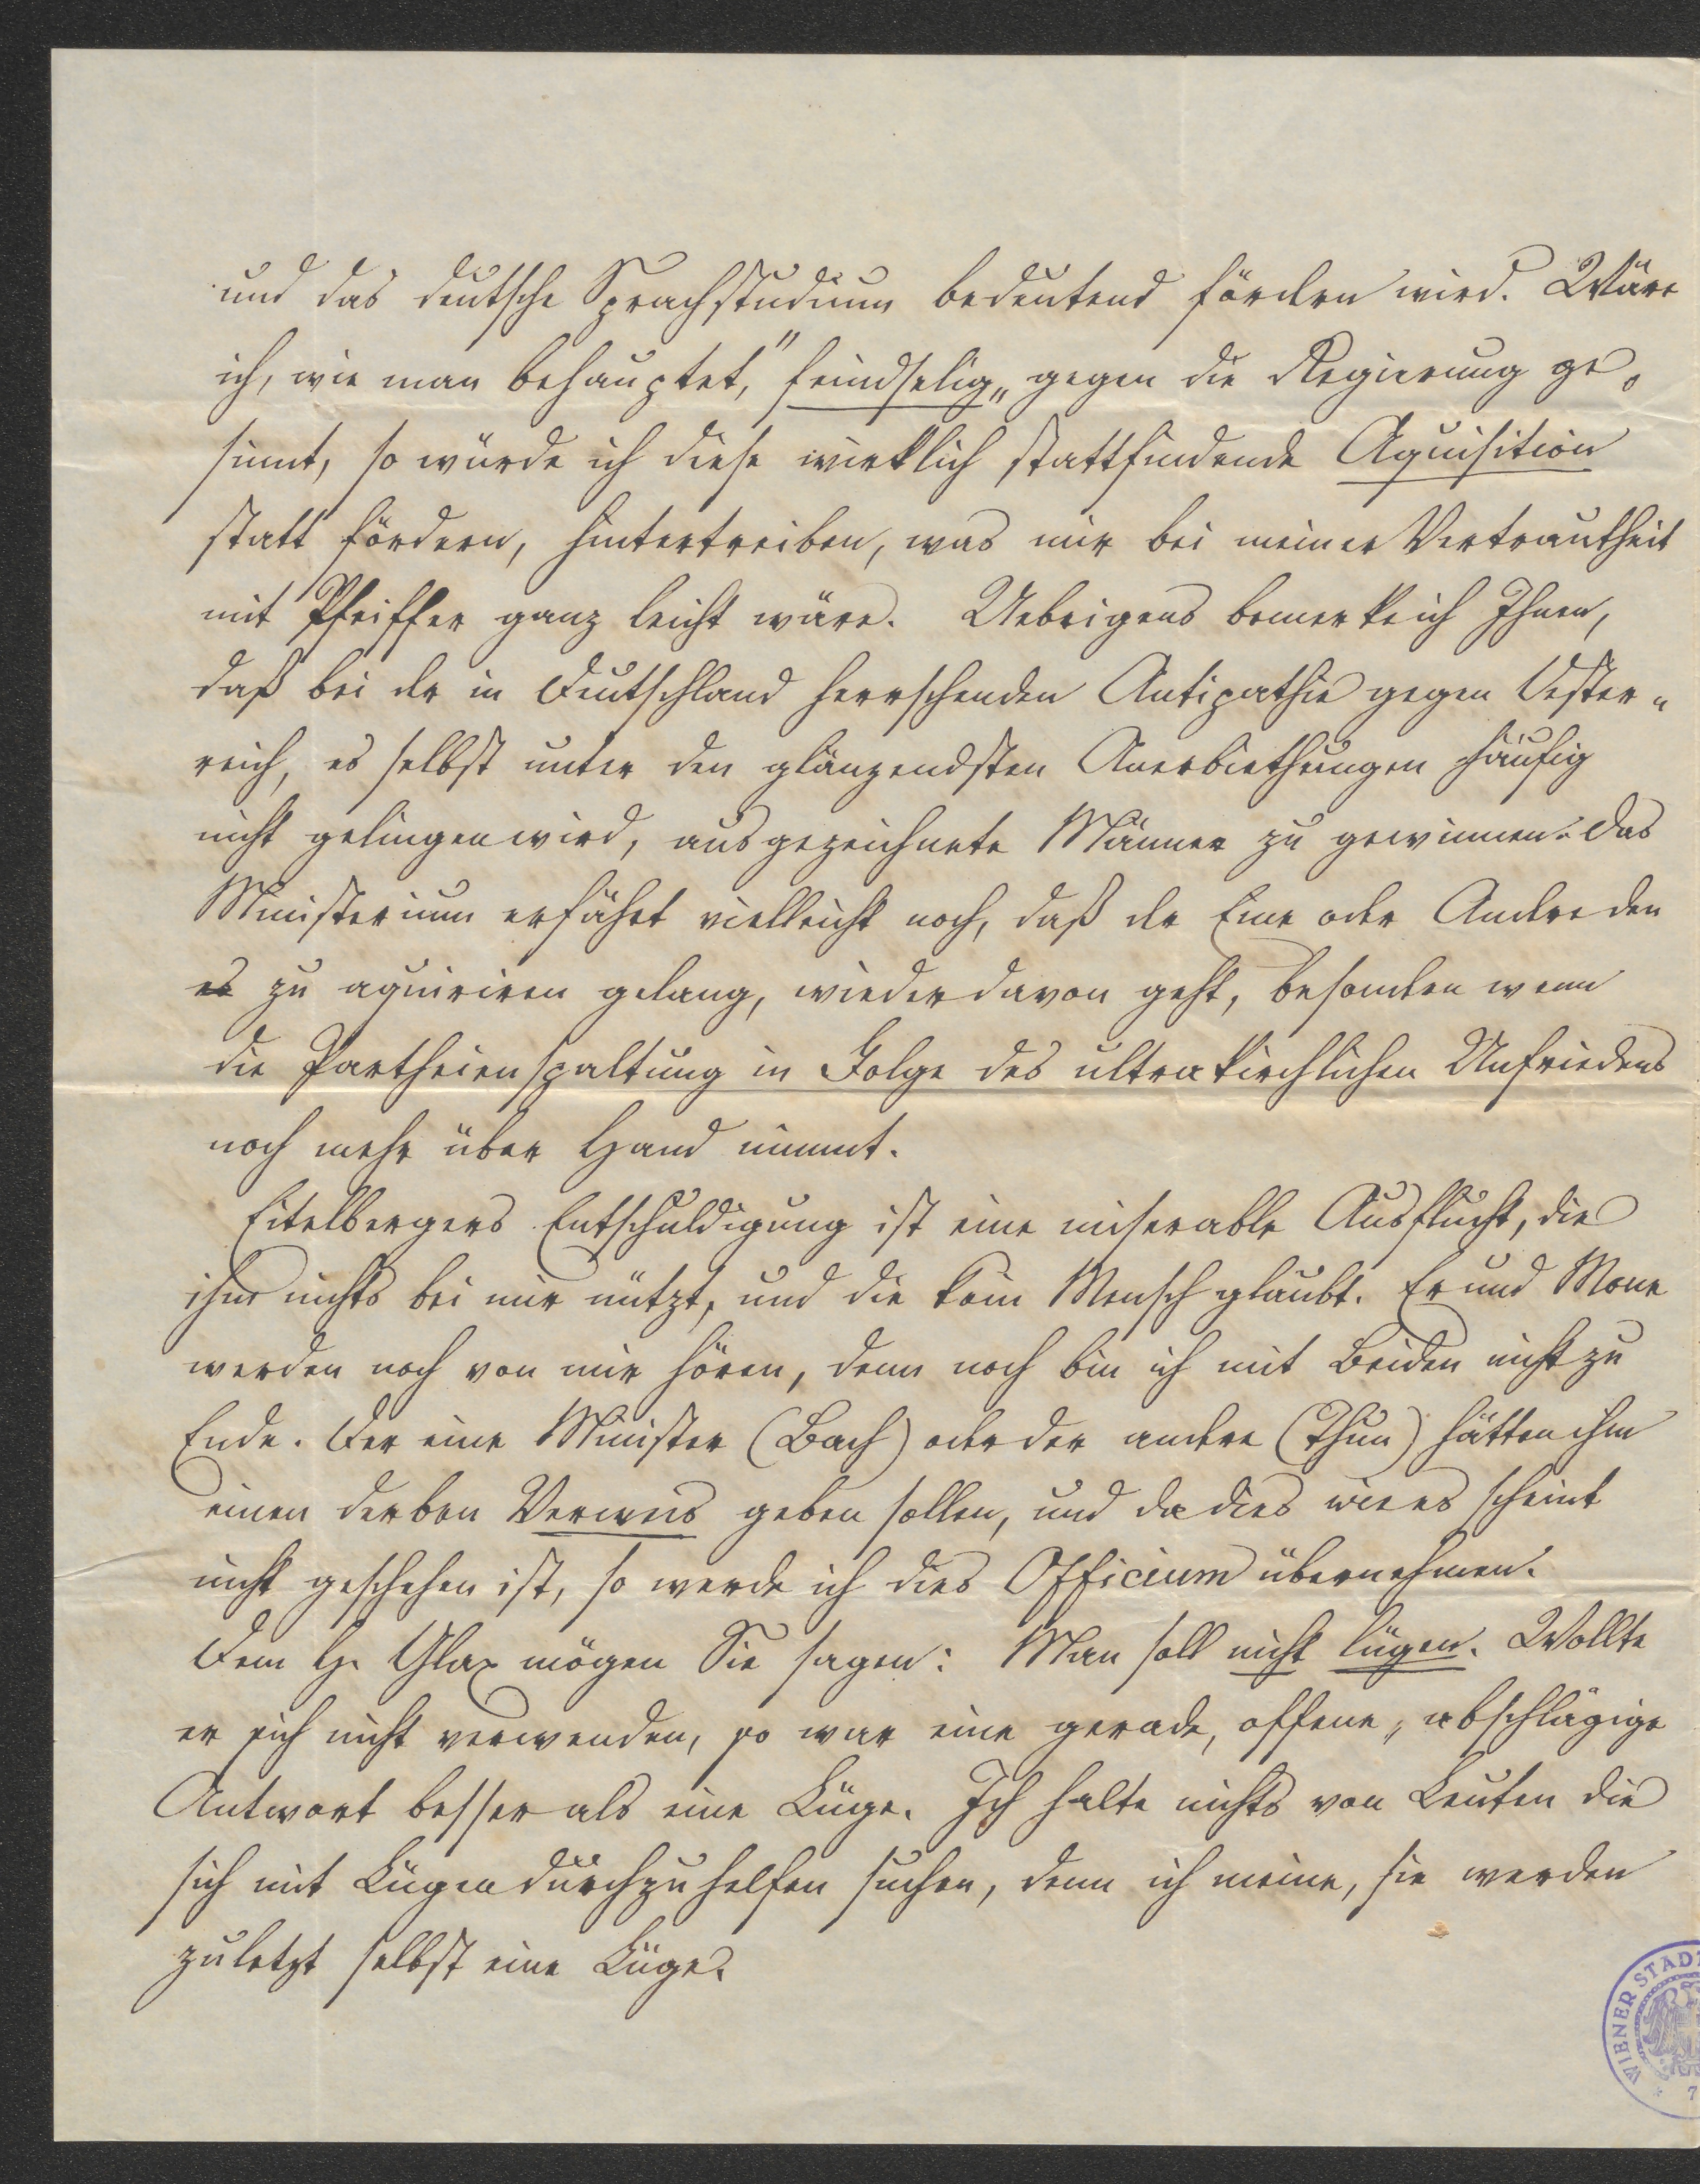 und das deutsche Sprachstudium bedeutend fördern wird. Wäre
ich, wie man behauptet, "feindselig„ gegen die Regierung ge-
sinnt, so würde ich diese wirklich stattfindende Aquisition
statt fördern, hintertreiben, was mir bei meiner Vertrautheit
mit Pfeiffer ganz leicht wäre. Uebrigens bemerke ich Ihnen,
daß bei der in Deutschland herrschenden Antipathie gegen Oester-
reich, es selbst unter den glänzendsten Anerbiethungen häufig
nicht gelingen wird, ausgezeichnete Männer zu gewinnen. Das
Ministerium erfährt vielleicht noch, daß der Eine oder Andere den
es zu aquiriren gelang, wieder davon geht, besonders wenn
die Partheienspaltung in Folge des ultrakirchlichen Unfriedens
noch mehr über Hand nimmt.
Eitelbergers Entschuldigung ist eine miserable Ausflucht, die
ihm nichts bei mir nützt, und die kein Mensch glaubt. Er und Mone
werden noch von mir hören, denn noch bin ich mit Beiden nicht zu
Ende. Der eine Minister (Bach) oder der andere (Thun) hätten ihm
einen derben Verweis geben sollen, und da dies wie es scheint
nicht geschehen ist, so werde ich dies Officium übernehmen.
Dem H. Glax mögen Sie sagen: Man soll nicht lügen. Wollte
er sich nicht verwenden, so war eine gerade, offene, abschlägige
Antwort besser als eine Lüge. Ich halte nichts von Leuten die
sich mit Lügen durchzuhelfen suchen, denn ich meine, sie werden
zuletzt selbst eine Lüge.
WIENER STADT
7